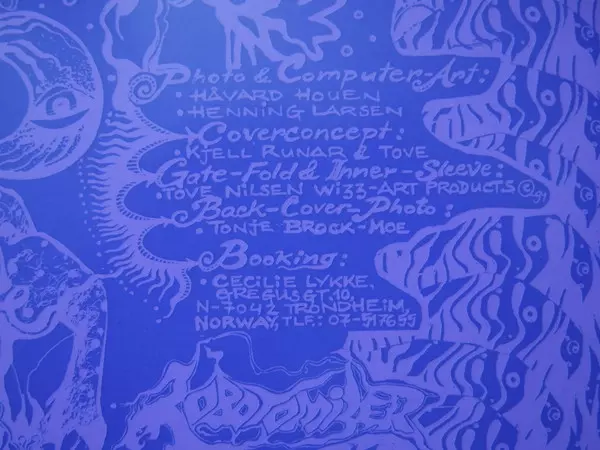 Photo & Computer-Art:
• HÅVARD HOUEN
• HENNING LARSEN
Coverconcept:
• KJELL RUNAR & TOVE
Gate-Fold & Inner-Sleeve:
• TOVE NILSEN WIZZ-ART PRODUCTS © 91
Back-Cover-Photo:
• TONJE BROCK-MOE
Booking:
• CECILIE LYKKE,
GREGUSGT. 10
N-7042 TRONDHEIM,
NORWAY, TLF: 07-517655